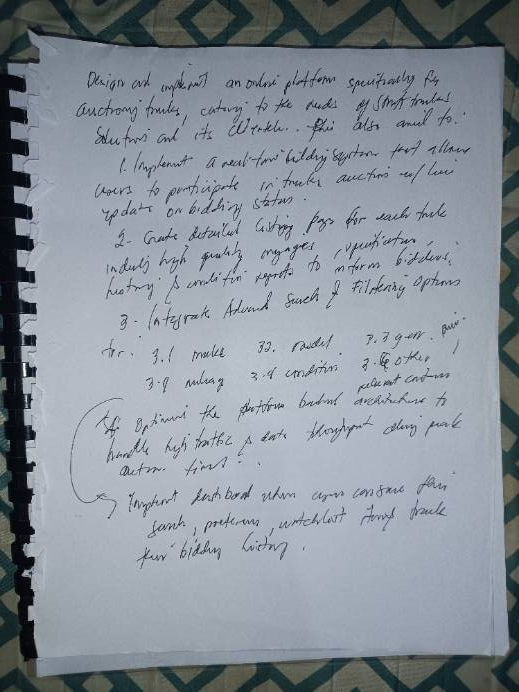 Design and implement an online platform specifically for
auctioning trucks, catering to the needs of Smart trucks
Solutions and its Clientele. This also aimed to:
1. Implement a real-time bidding system that allows
users to participate in trucks auction w/ live
update on bidding status.
2- Create detailed listing page for each truck
including high quality images, specification,
history & condition reports to inform bidders.
3- Integrate Advanced Search & Filtering Options
for: 3.1 makes 3.2. model 3.3 year
3.4 mileage condition other
relevant
Optimize the platform backend architecture to
handle high traffic & data throughput during peak
auction times.
Implement dashboard where users can save their
search, preferences, watchlist and track
their bidding history.